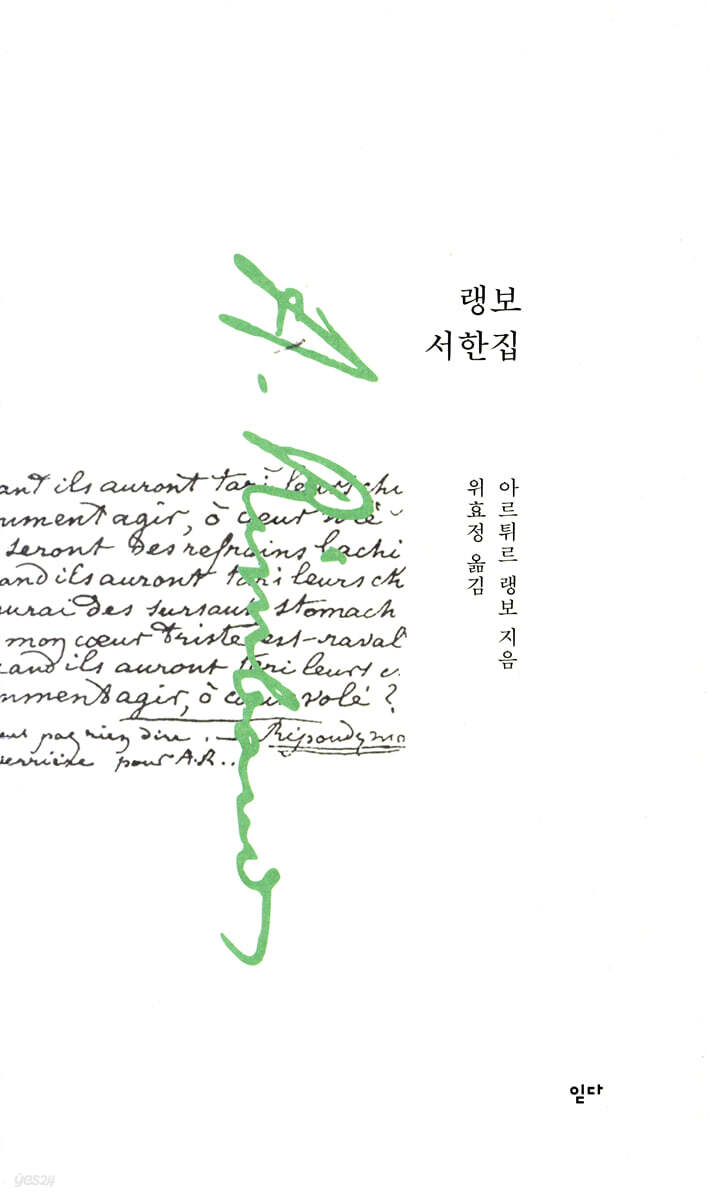 랭보
서한집
아르튀르 랭보 지음
위효정 옮김
A. Rimbaud
ant ils auront tari leurs chi
umment agir, ô cœur volé
seront des refrains bachi
and ils auront tari leurs ch
urai des sursauts stomach
mon cœur triste est raval
and ils auront tari leurs c
mment agir, ô cœur volé ?
pas rien dire. — Répondez mo
derrière pour A.R..
읻다
yes24